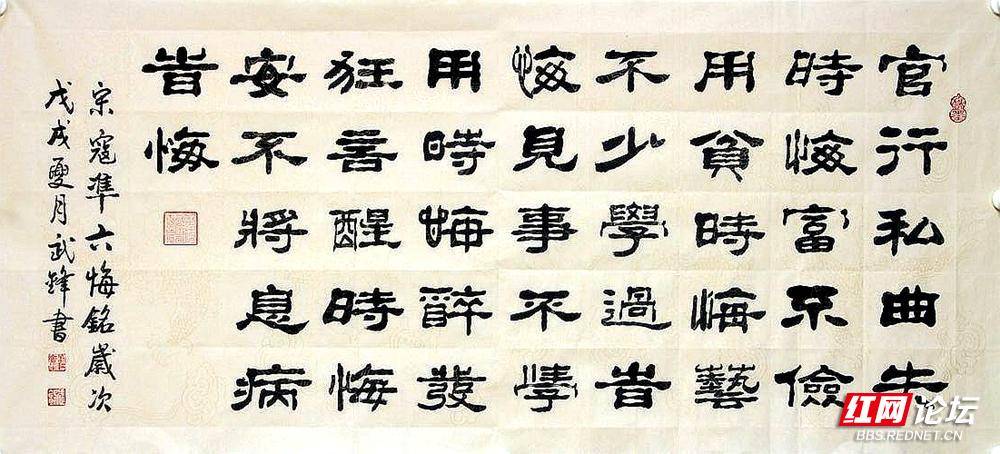 官行私曲失
時悔富不儉
用貧時悔藝
不少學過旹
悔見事不學
用時悔醉發
狂言醒時悔
安不將息病
旹悔
宋寇準六悔銘歲次
戊戌夏月武鋒書
红网论坛
BBS.REDNET.CN